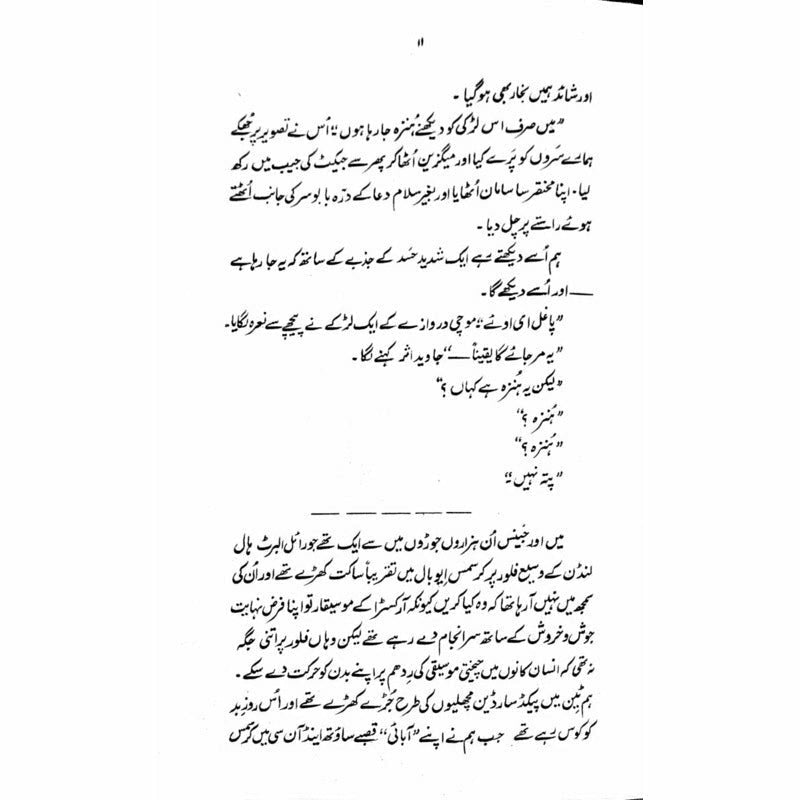 ۱۱
اور شائد ہمیں بخار بھی ہو گیا ۔
"میں صرف اس لڑکی کو دیکھنے ہُنزہ جا رہا ہوں" اُس نے تصویر پر جُھکے
ہمارے سَروں کو پَرے کیا اور میگزین اُٹھا کر پھر سے جیکٹ کی جیب میں رکھ
لیا۔ اپنا مختصر سا سامان اُٹھایا اور بغیر سلام دعا کے درّہ بابوسر کی جانب اُٹھتے
ہوئے راستے پر چل دیا ۔
ہم اُسے دیکھتے رہے ایک شدید حَسد کے جذبے کے ساتھ کہ یہ جا رہا ہے
— اور اُسے دیکھے گا ۔
"پاغل ای اوئے" موچی دروازے کے ایک لڑکے نے پیچھے سے نعرہ لگایا۔
"یہ مر جائے گا یقیناً —" جاوید اثر کہنے لگا ۔
"لیکن یہ ہُنزہ ہے کہاں ؟"
"ہُنزہ ؟"
"ہُنزہ ؟"
"پتہ نہیں"
— — — — —
میں اور جَینس اُن ہزاروں جوڑوں میں سے ایک تھے جو رائل البرٹ ہال
لنڈن کے وسیع فلور پر کرسمس ایو بال میں تقریباً ساکت کھڑے تھے اور اُن کی
سمجھ میں نہیں آ رہا تھا کہ وہ کیا کریں کیونکہ آرکسٹرا کے موسیقار تو اپنا فرض نہایت
جوش و خروش کے ساتھ سر انجام دے رہے تھے لیکن وہاں فلور پر اتنی جگہ
نہ تھی کہ انسان کانوں میں چیختی موسیقی کی ردھم پر اپنے بدن کو حرکت دے سکے ۔
ہم ٹین میں پیکڈ سارڈین مچھلیوں کی طرح جُڑے کھڑے تھے اور اُس روزِ بد
کو کوس رہے تھے جب ہم نے اپنے "آبائی" قصبے ساؤتھ اینڈ آن سی میں کرسمس